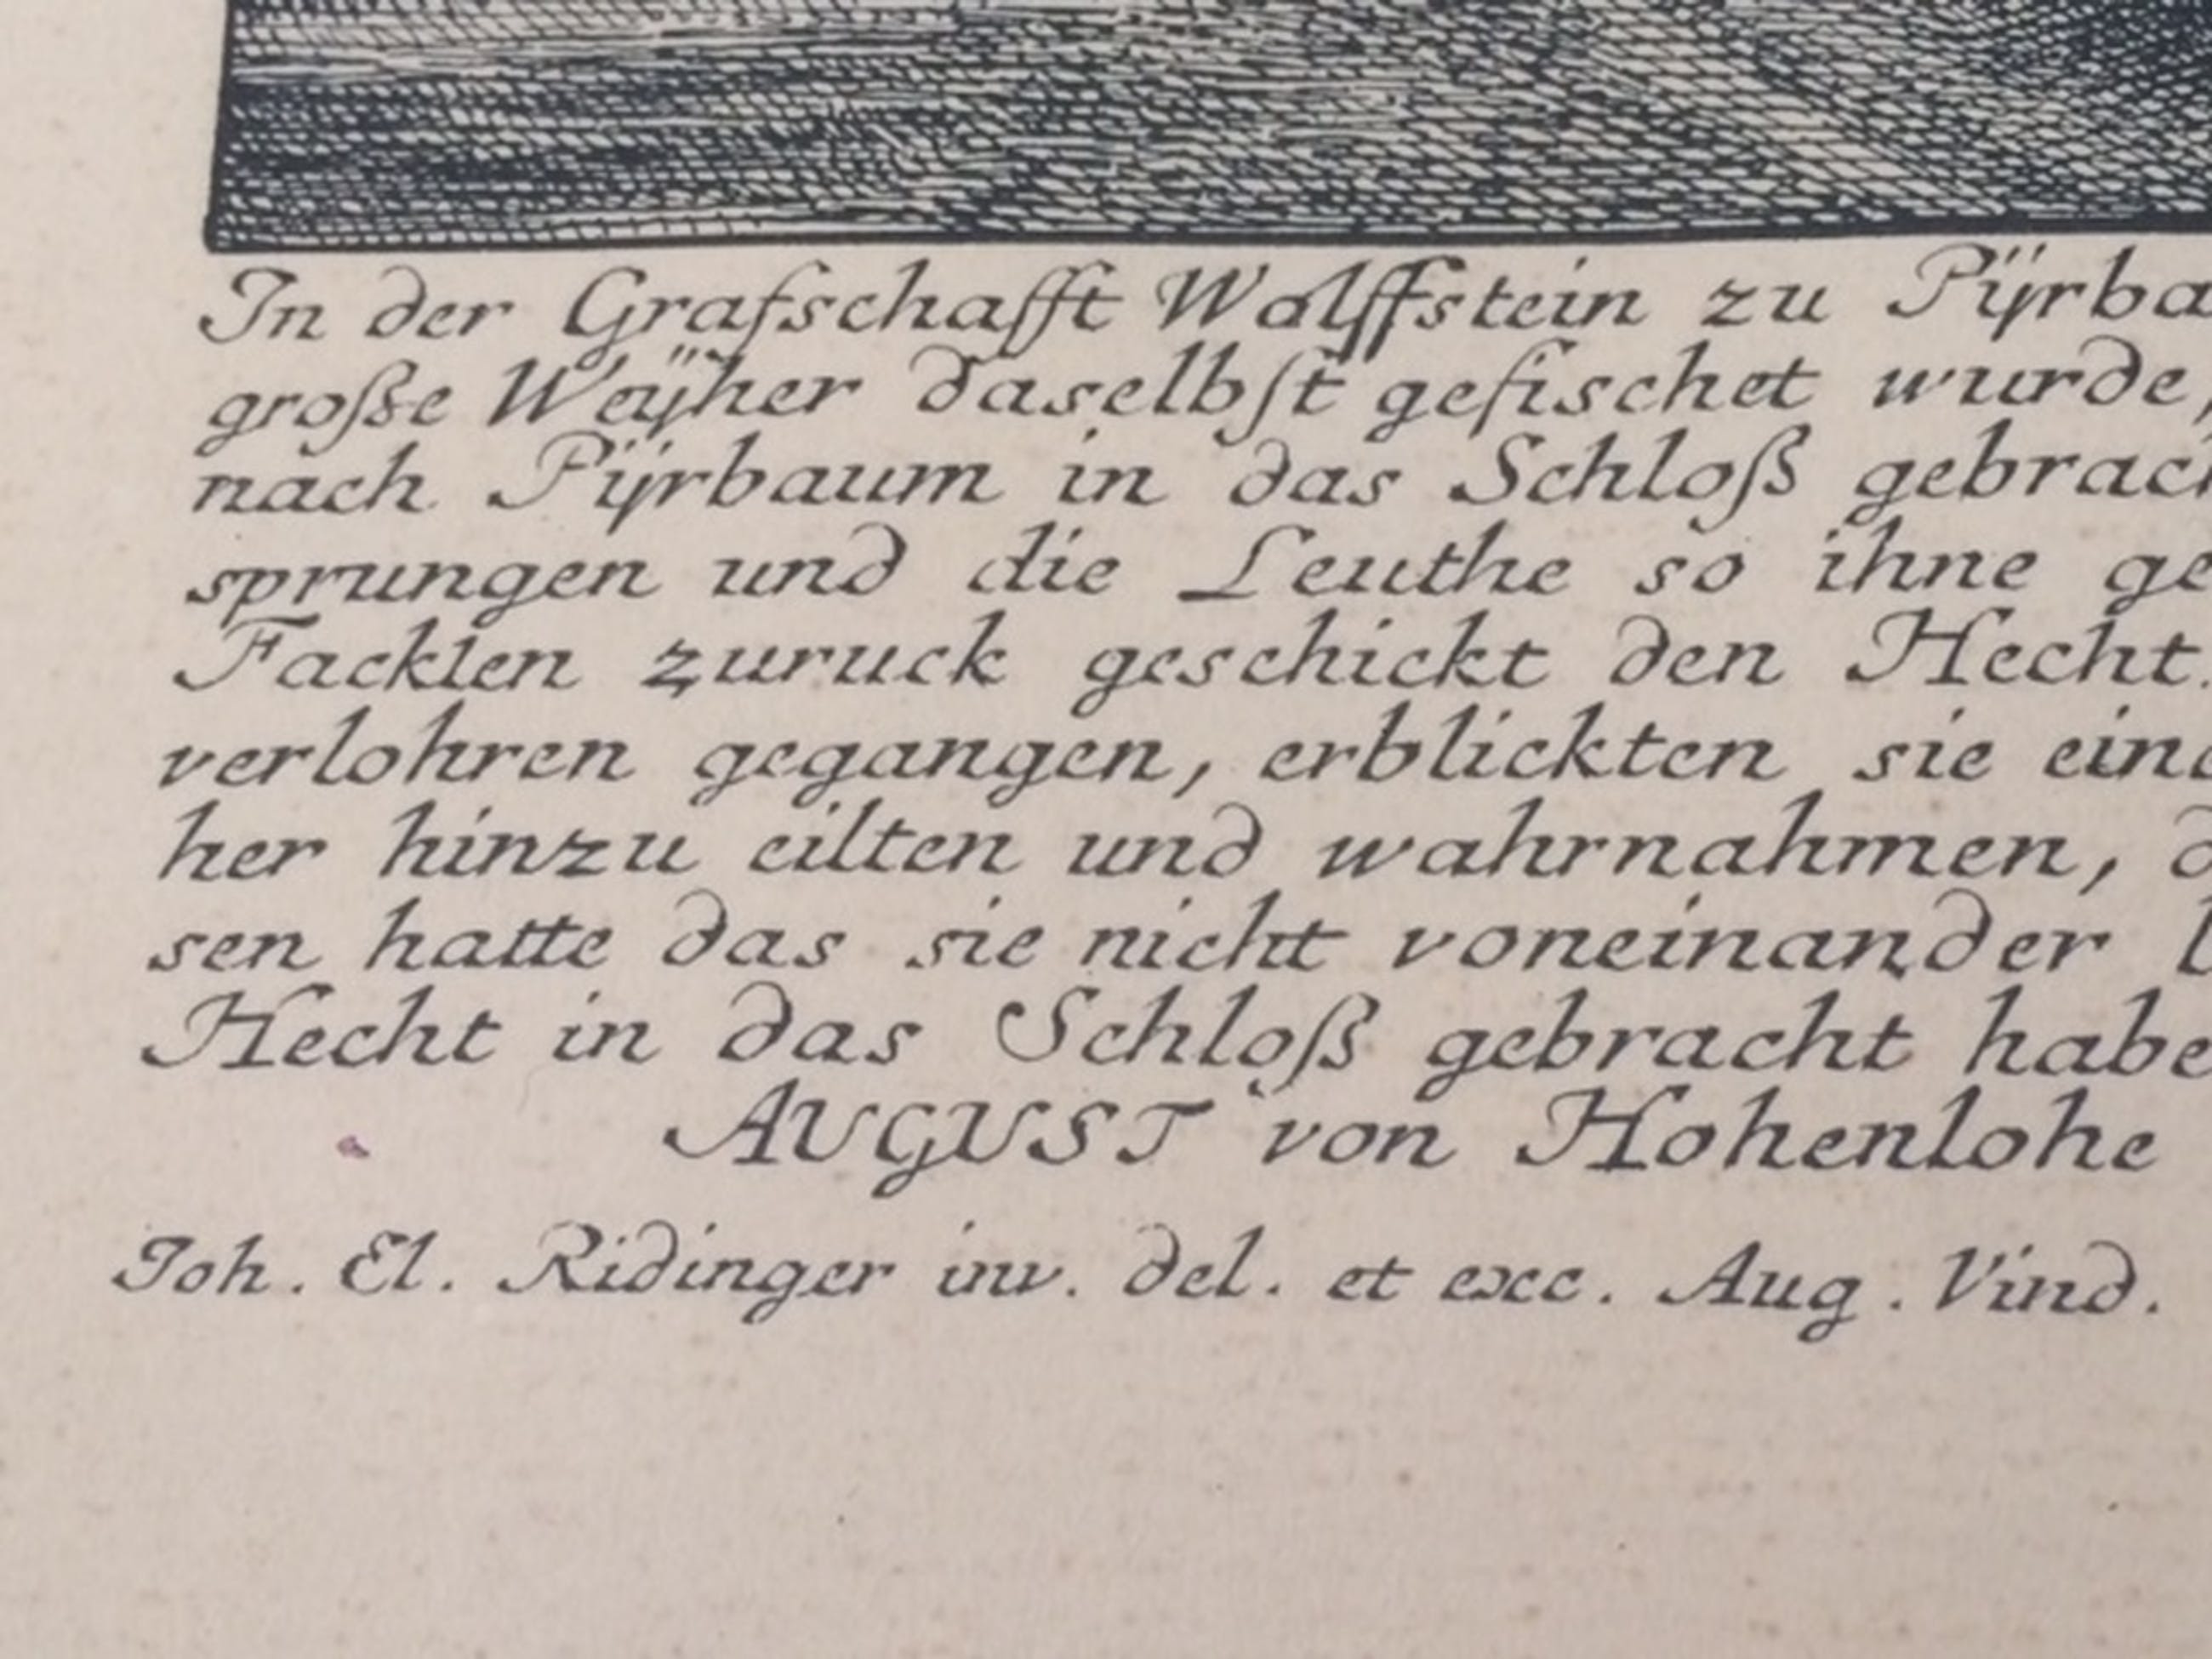 In der Grafschafft Wolffstein zu Pÿrba
große Weÿher daselbst gefischet wurde,
nach Pÿrbaum in das Schloß gebrach
sprungen und die Leuthe so ihne ge
Facklen zuruck geschickt den Hecht.
verlohren gegangen, erblickten sie eine
her hinzu eilten und wahrnahmen, d
sen hatte das sie nicht voneinander l
Hecht in das Schloß gebracht habe
AUGUST von Hohenlohe
Joh. El. Ridinger inv. del. et exc. Aug. Vind.